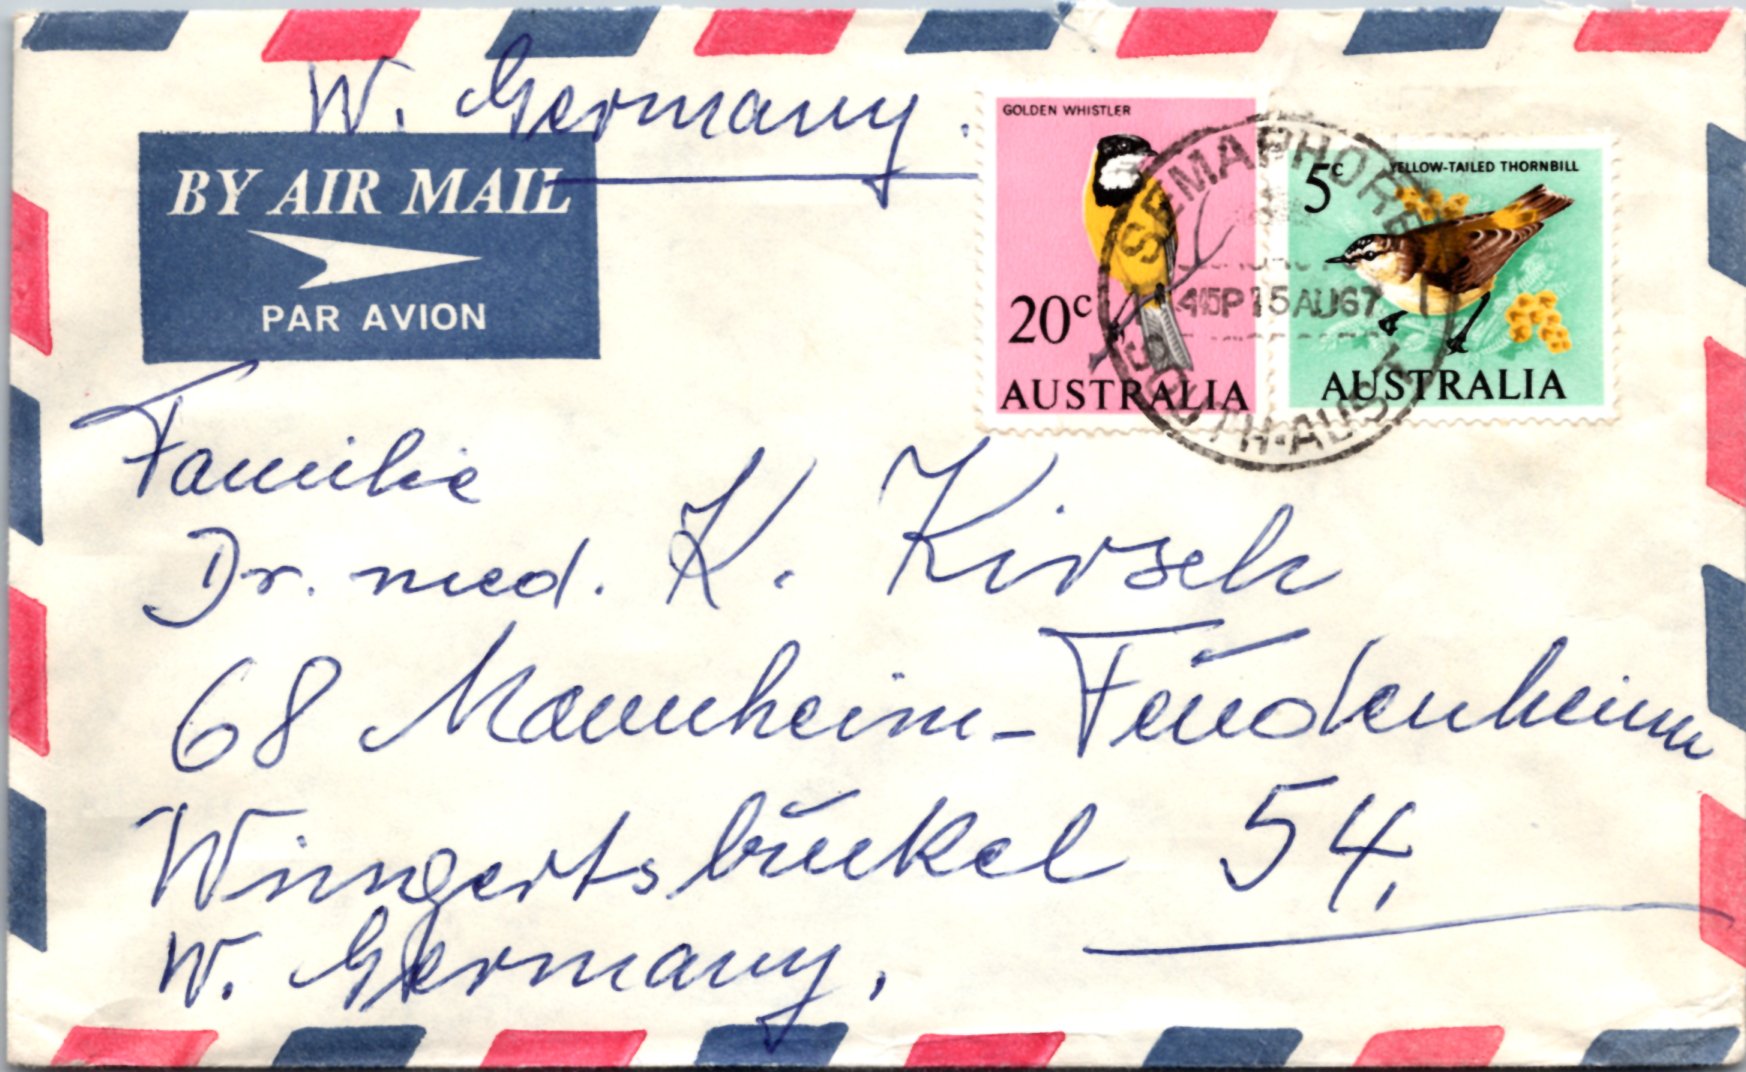 W. Germany.
BY AIR MAIL
PAR AVION
GOLDEN WHISTLER
20c
AUSTRALIA
5c
YELLOW-TAILED THORNBILL
AUSTRALIA
SEMAPHORE
415P 15AU67
SOUTH-AUST
Familie
Dr. med. K. Kirsch
68 Mannheim-Feudenheim
Wingertsbuckel 54,
W. Germany,